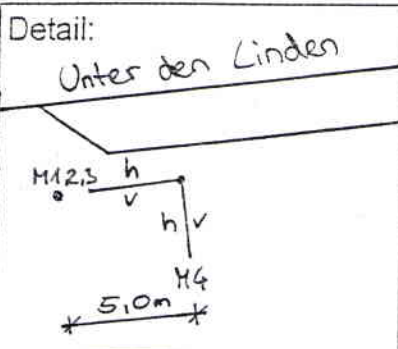 Detail:
Unter den Linden
M1 2,3 h
v
h v
M4
5,0m